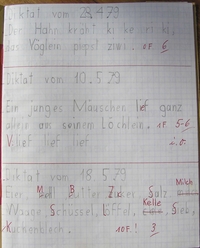 Diktat vom 28.4.79
Der Hahn kräht ki ke ri ki,
das Vöglein piepst ziwi. 0F. 6
Diktat vom 10.5.79
Ein junges Mäuschen lief ganz
allein aus seinem Löchlein. 1F. 5-6
V lief lief lief i.O.
Diktat vom 18.5.79
Eier, Mehl Butter Zucker Salz Milch
Waage, Schüssel, Löffel, Kelle Sieb,
Kuchenblech. 10F! 3